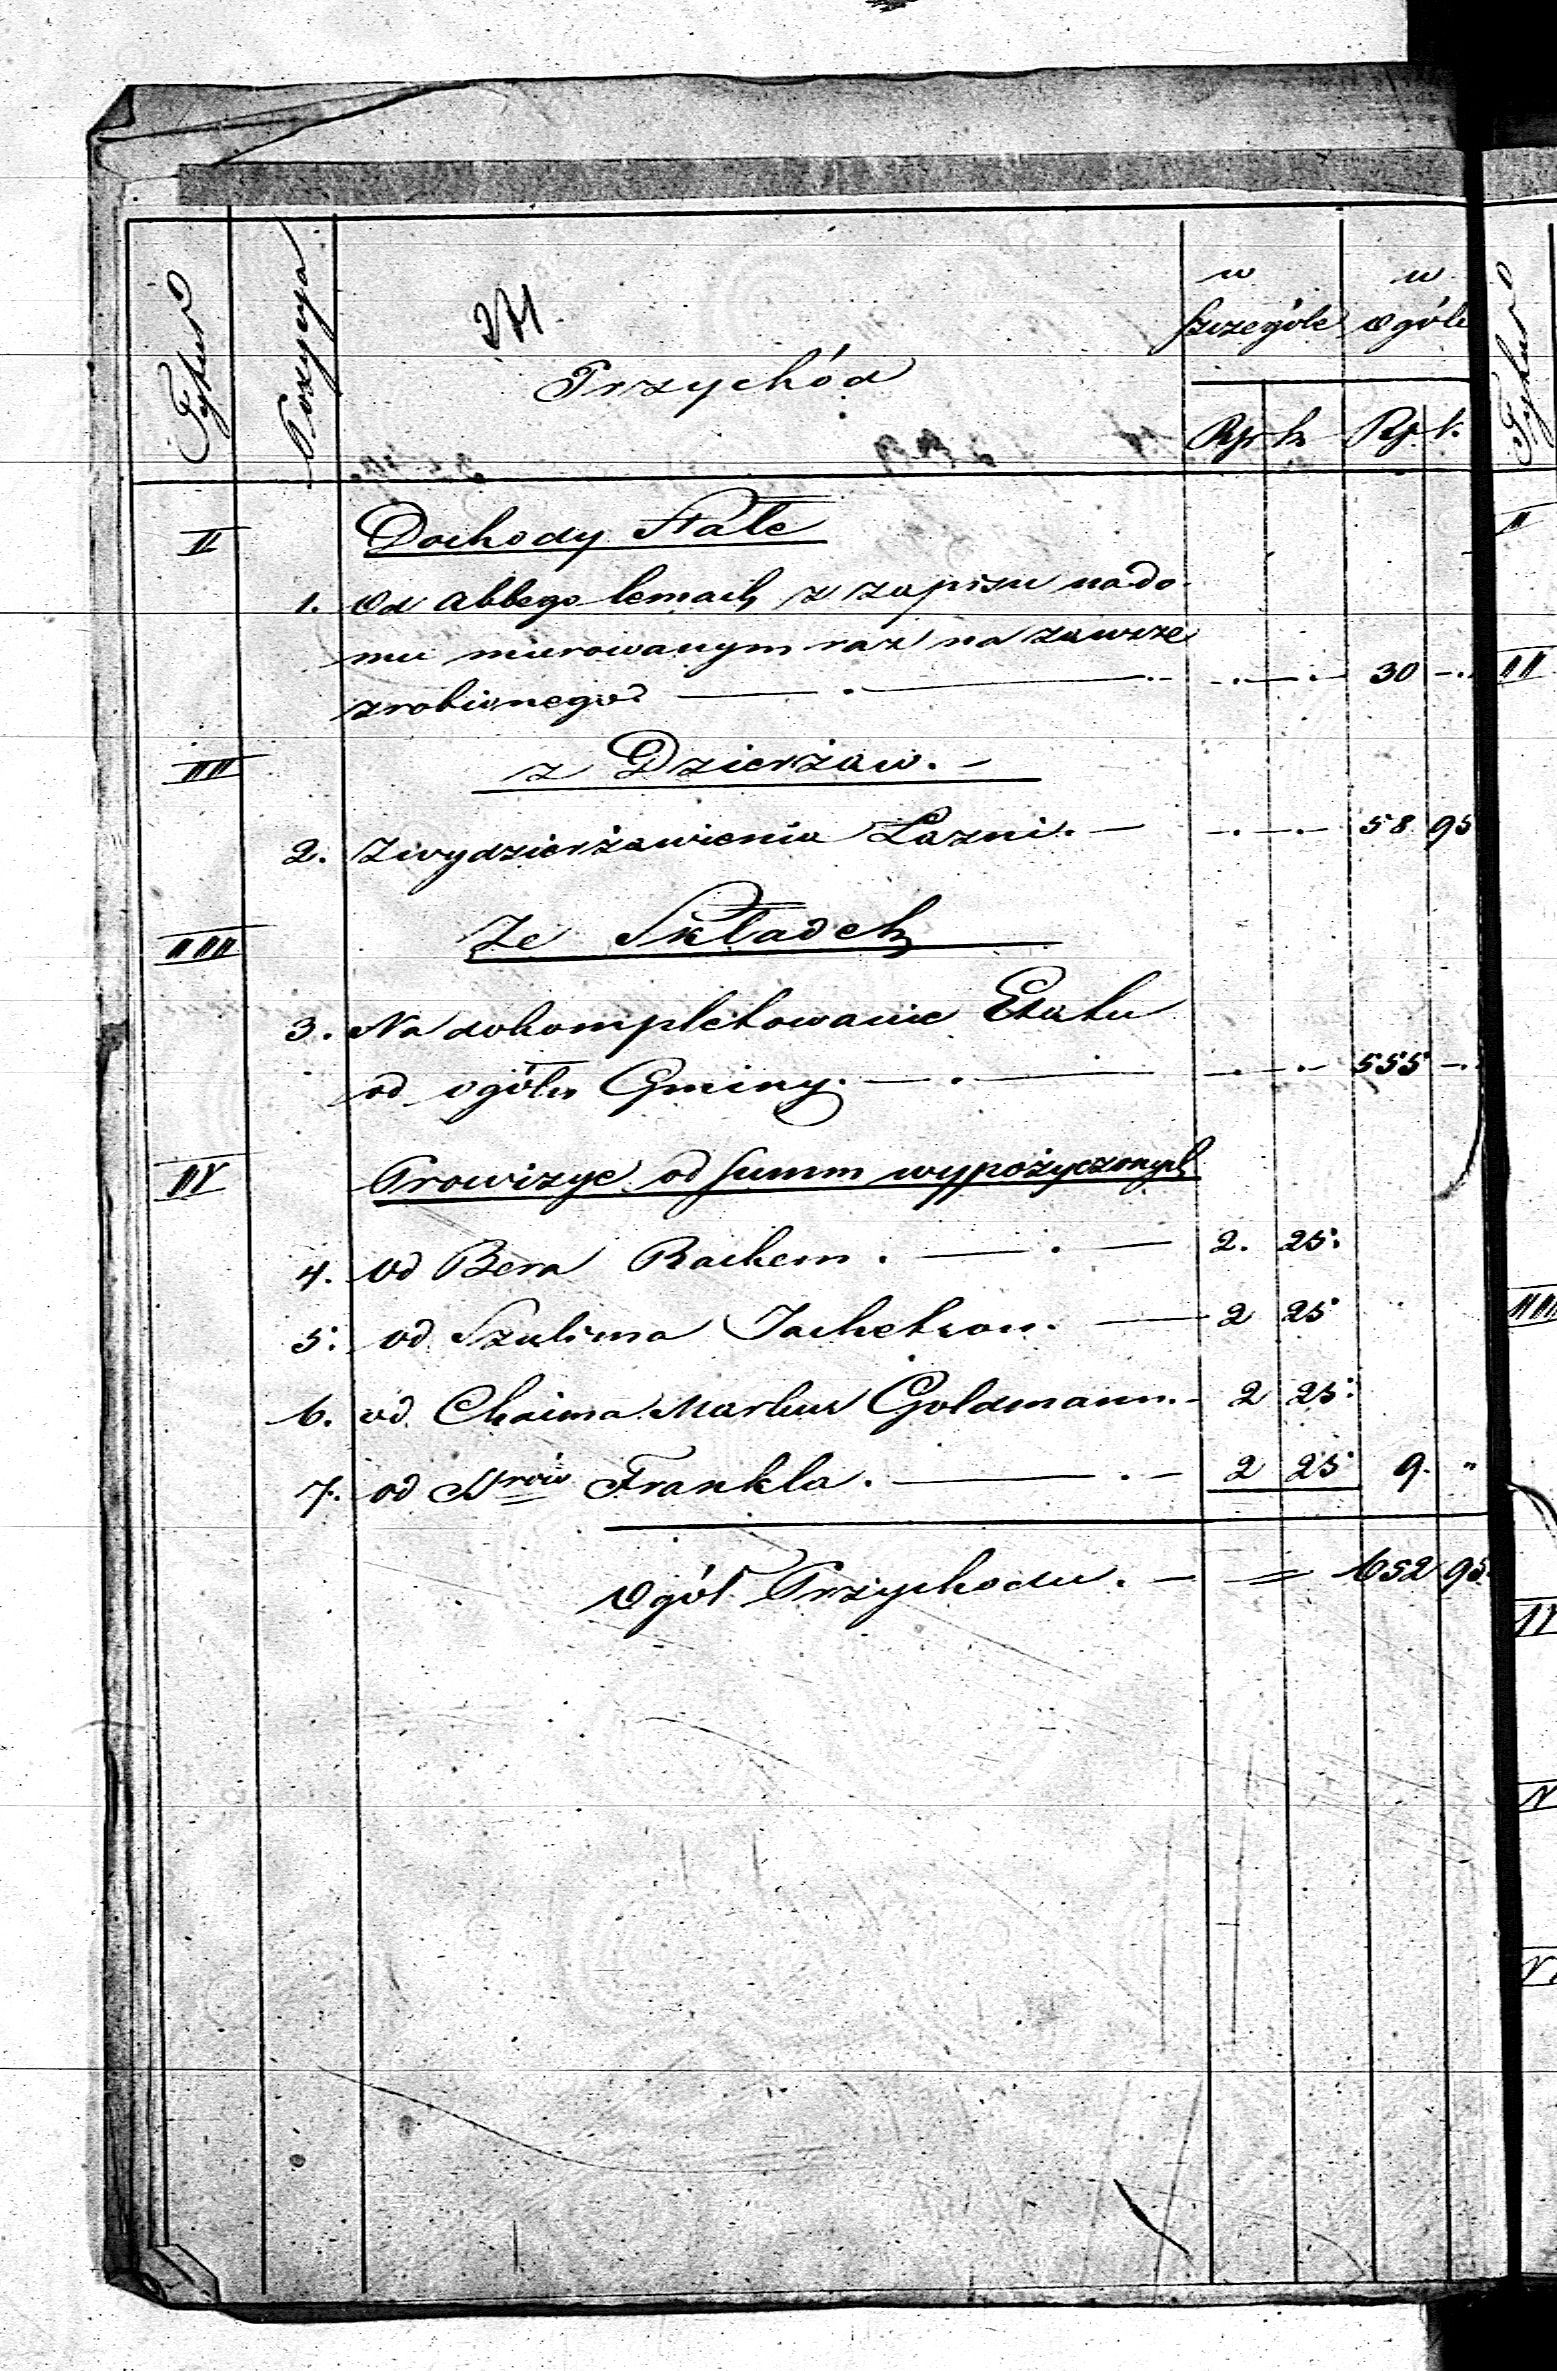 Tytuł
Pozycya
271.
Przychód
w szczególe
w ogóle
Rsr k Rsr k.
II Dochody Stałe
1. Od Abbego Lemach z zapisu na do-
mu murowanym raz na zawsze
zrobionego — . — . — 30 —
III z Dzierżaw. —
2. Z wydzierżawienia Łazni. — . — . — 58 95
IIII Ze Składek
3. Na dokompletowanie Etatu
od ogółu Gminy. — . — . — 555 —
IV Prowizye od summ wypożyczonych
4. od Bera Rachem . — . — 2. 25.
5. od Szulima Jachetson. — 2 25
6. od Chaima Markus Goldmann. - 2 25.
7. od Nrów Frankla. — . — 2 25 9. "
Ogół Przychodu. — = 652 95.
Tytuł
II
III
IIII
IV
V